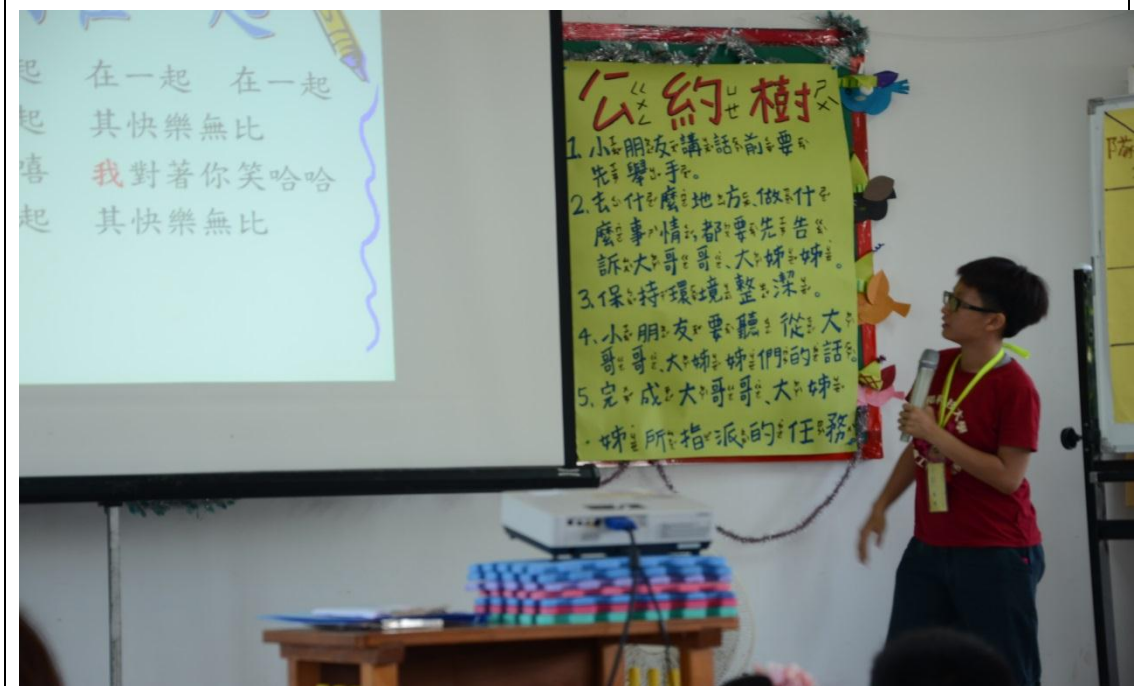 在一起
起 在一起 在一起
起 其快樂無比
嘻 我對著你笑哈哈
起 其快樂無比
公ㄍㄨㄥ約ㄩㄝ樹ㄕㄨˋ
1.小朋友講話前要
先舉手。
2.去什麼地方、做什
麼事情,都要先告
訴大哥哥、大姊姊。
3.保持環境整潔。
4.小朋友要聽從大
哥哥、大姊姊們的話。
5.完成大哥哥、大姊
姊所指派的任務
隊